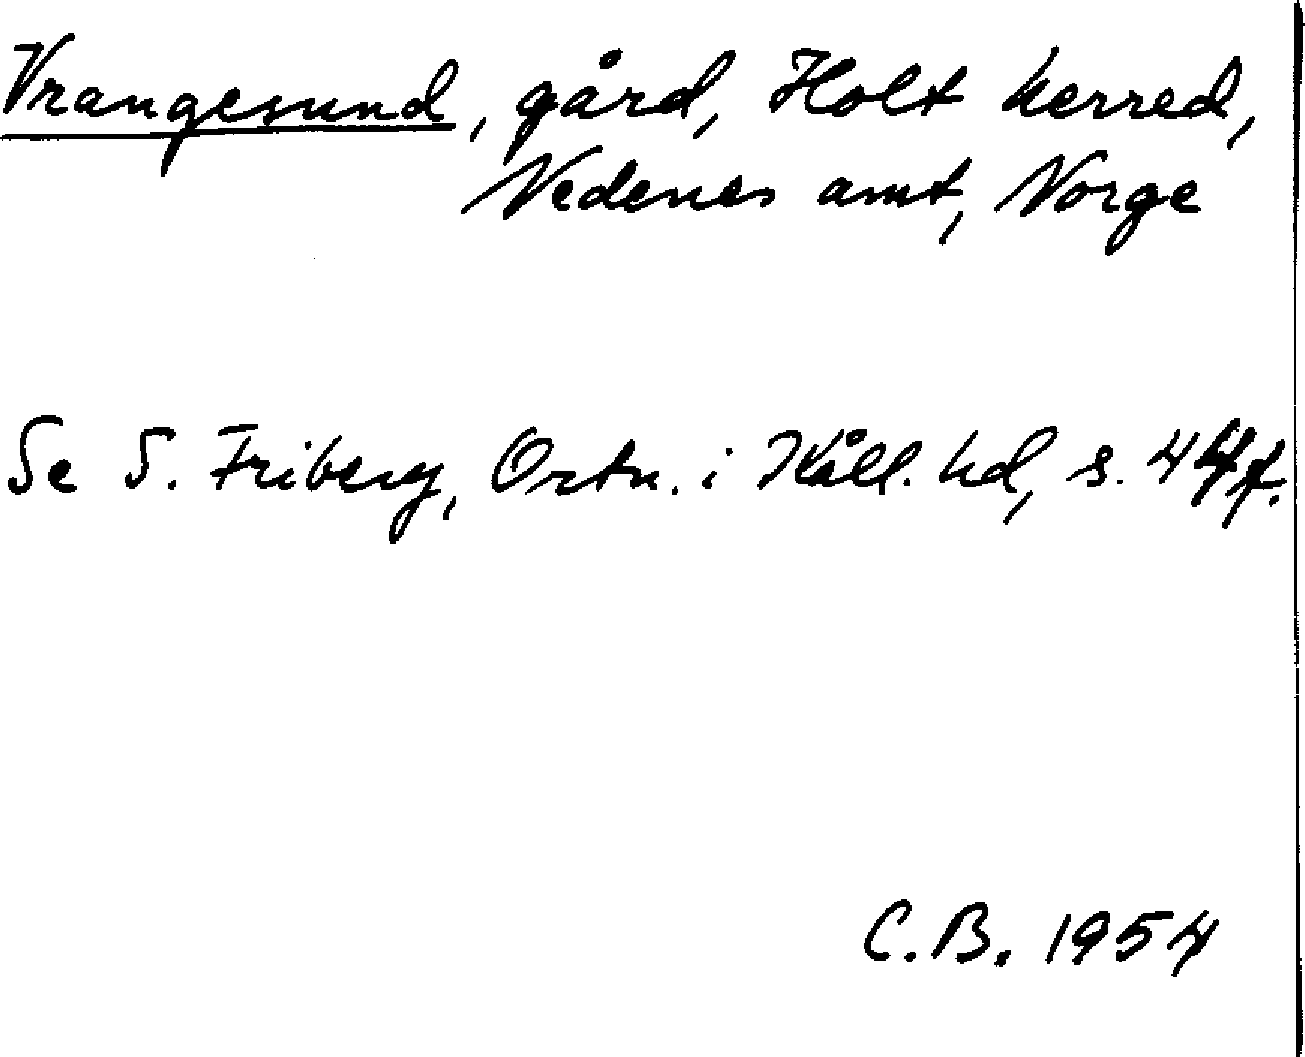 Vrangesund, gård, Holt herred,
Nedenes amt, Norge
Se S. Friberg, Ortn. i Kåll. hd, s. 44f.
C.B. 1954